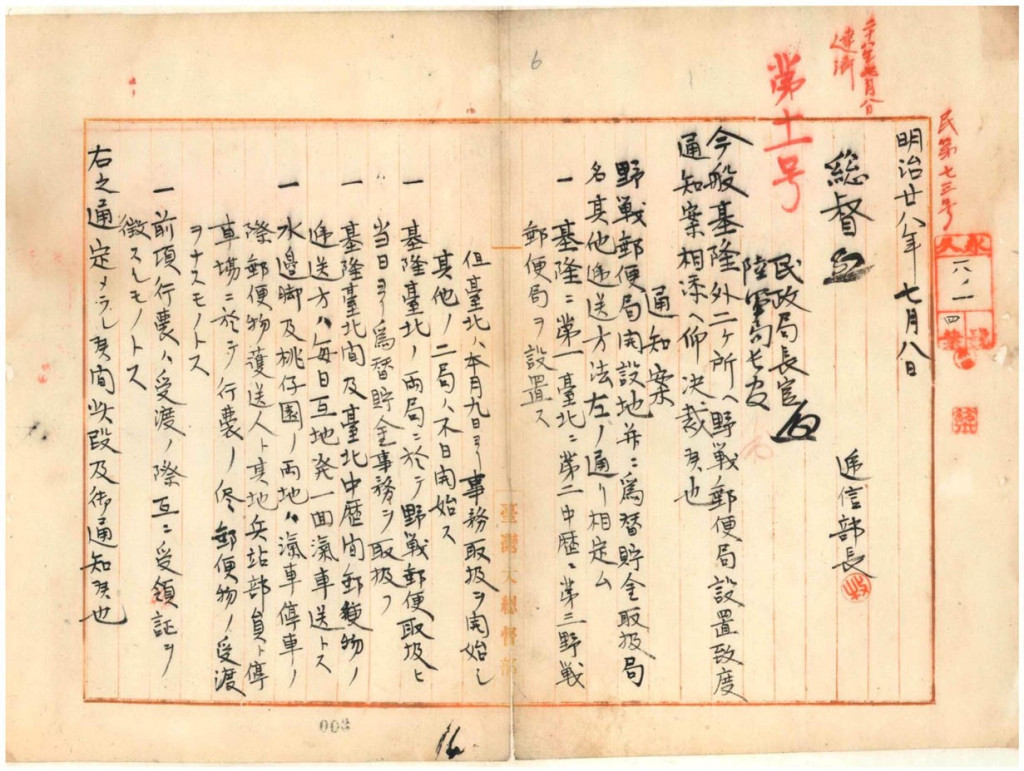 民第七三号
永久
一八ノ一
四
明治廿八年七月八日
二十八年七月分
第十一号
総督
逓信部長
民政局長官
陸軍局長
今般基隆外二ヶ所ヘ野戦郵便局設置致度
通知案相添ヘ仰决裁候也
通知案
野戦郵便局開設地并ニ為替貯金取扱局
名其他逓送方法左ノ通リ相定ム
一 基隆ニ第一臺北ニ第二中歴ニ第三野戦
郵便局ヲ設置ス
但臺北ハ本月九日ヨリ事務取扱ヲ開始シ
其他ノ二局ハ不日開始ス
一 基隆臺北ノ両局ニ於テ野戦郵便取扱ヒ
当日ヨリ為替貯金事務ヲ取扱フ
一 基隆臺北間及臺北中歴間郵便物ノ
逓送方ハ毎日互地発一回滊車送トス
一 水邊脚及桃仔園ノ両地ハ滊車停車ノ
際郵便物護送人ト其地兵站部員ト停
車場ニ於テ行嚢ノ侭郵便物ノ受渡
ヲナスモノトス
一 前項行嚢ハ受渡ノ際互ニ受領証ヲ
徴スルモノトス
右之通定メラレ候間此段及御通知候也
臺灣大総督部
6
003
16